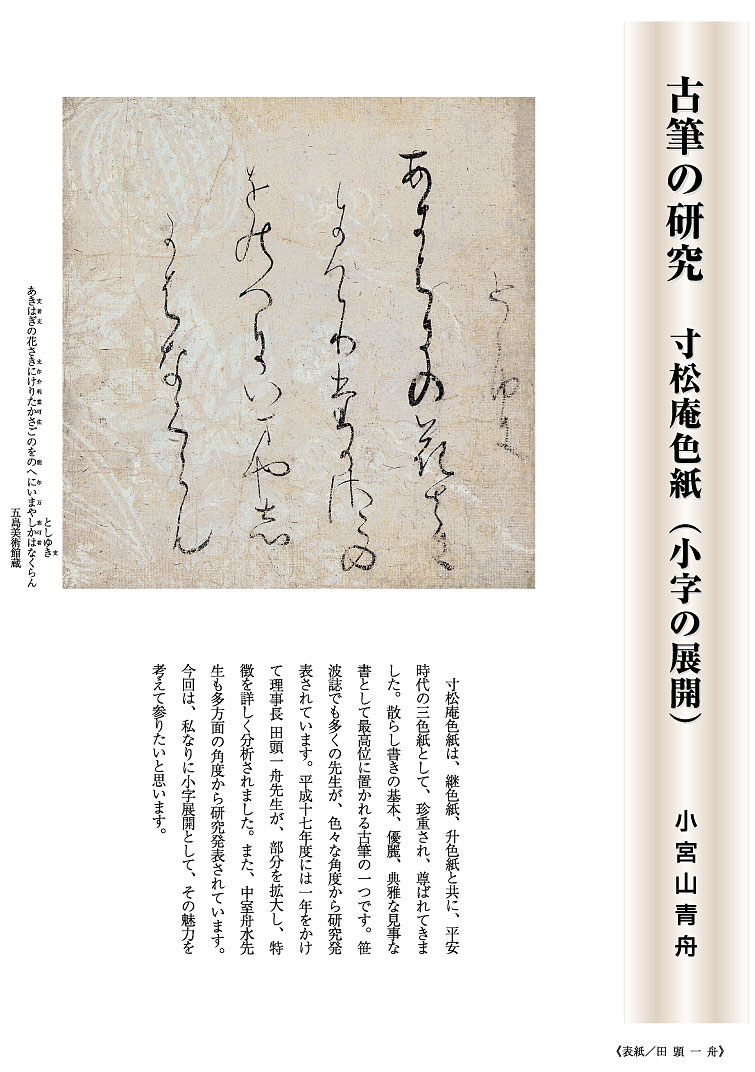 古筆の研究　寸松庵色紙（小字の展開）
小宮山青舟
としゆき
あきはぎの花さき
にけりたかさごの
をのへにいまやし
かはなくらん
としゆき
あきはぎの花さきにけりたかさごのをのへにいまやしかはなくらん
五島美術館蔵
寸松庵色紙は、継色紙、升色紙と共に、平安
時代の三色紙として、珍重され、尊ばれてきま
した。散らし書きの基本、優麗、典雅な見事な
書として最高位に置かれる古筆の一つです。笹
波誌でも多くの先生が、色々な角度から研究発
表されています。平成十七年度には一年をかけ
て理事長 田頭一舟先生が、部分を拡大し、特
徴を詳しく分析されました。また、中室舟水先
生も多方面の角度から研究発表されています。
今回は、私なりに小字展開として、その魅力を
考えて参りたいと思います。
《表紙／田 頭 一 舟》